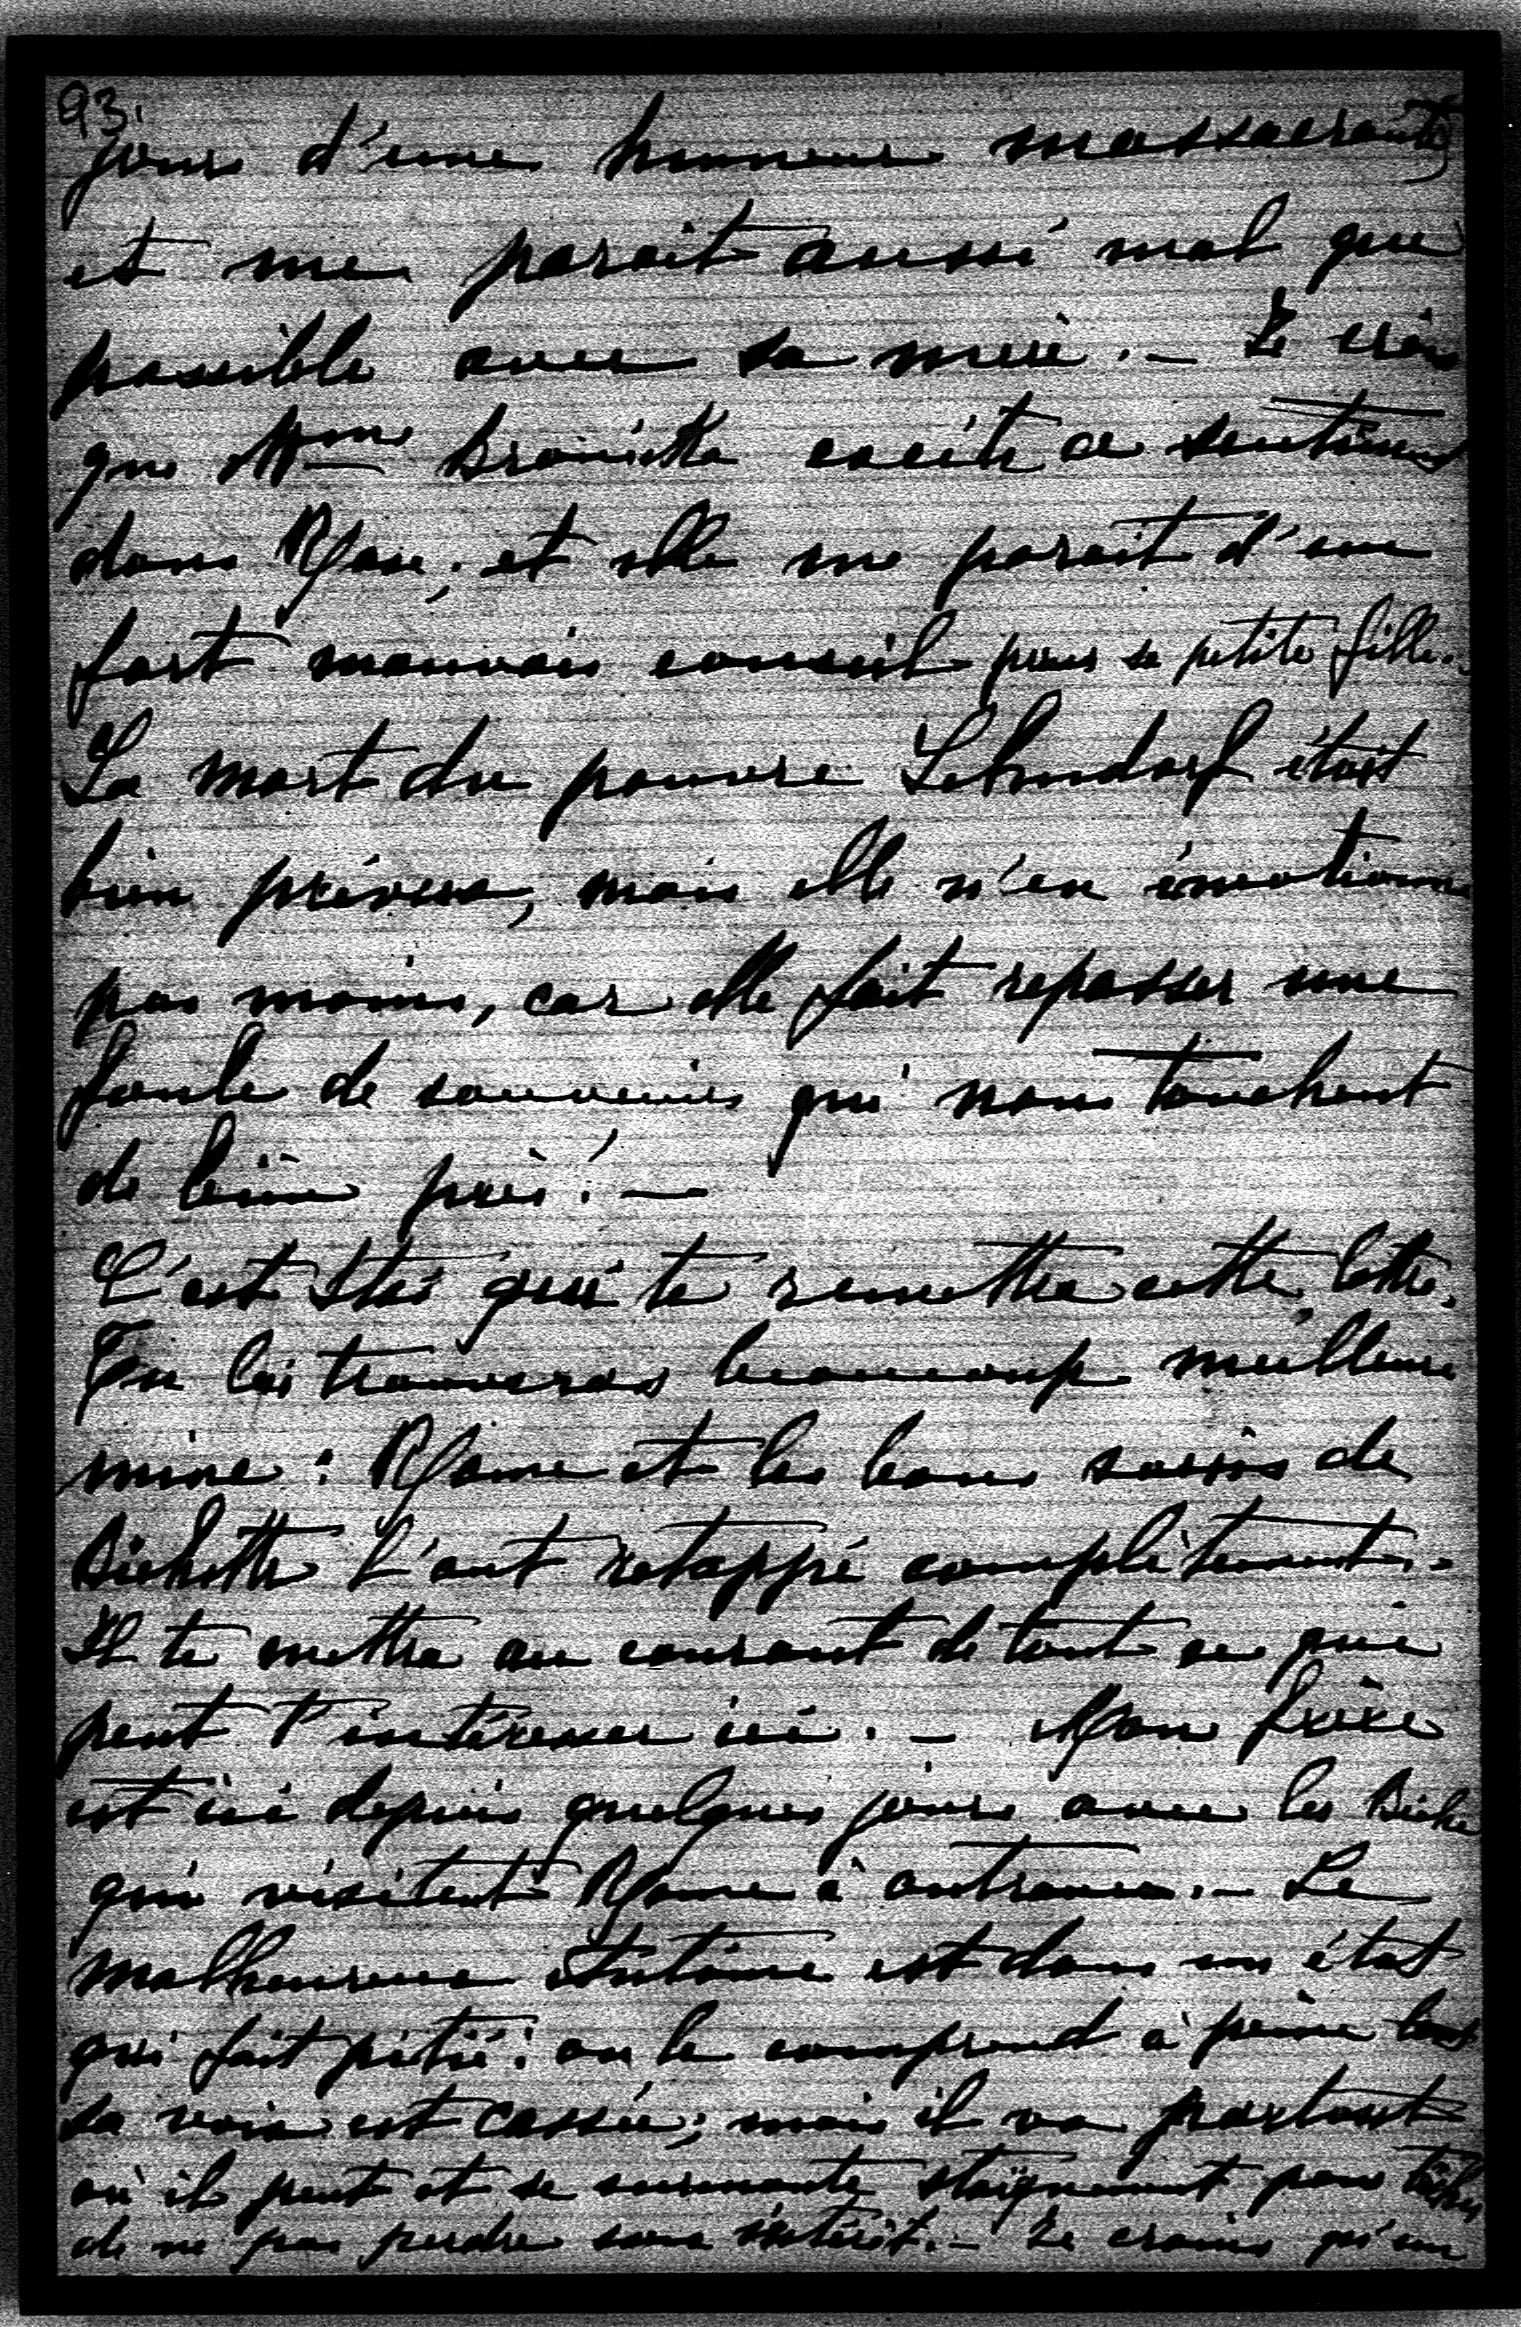 93.
jours d'une humeur massacrante,
et me parait aussi mal que
possible avec sa mère. — Je crois
que Mme Branicka excite ce sentiment
dans Rose, et elle me parait d'un
fort mauvais conseil pour sa petite fille. -
La mort du pauvre Lehndorf était
bien prévue, mais elle n'en émotionne
pas moins, car elle fait repasser une
foule de souvenirs qui nous touchent
de bien près! —
C'est qui te remettra cette lettre.
Tu lui trouveras beaucoup meilleure
mine: Rome et les bons soins de
Bichette l'ont retappé complètement. -
Il te mettra au courant de tout ce qui
peut t'intéresser ici. — Mon frère
est ici depuis quelques jours avec les Biche
qui visitent Rome à outrance. — Le
malheureux Antoine est dans un état
qui fait pitié: on le comprend à peine tant
sa voix est cassée; mais il va partout
où il peut et se surmonte stoïquement pour tâcher
de ne pas perdre son intérêt. — Je crains qu'un